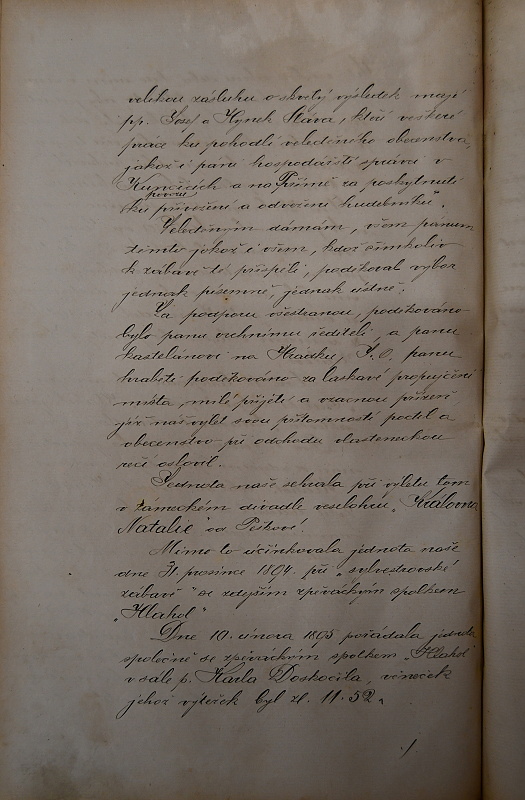 velikou zásluhu o skvělý výsledek mají
pp. Josef a Hynek Šťáva, kteří veškeré
práce ku pohodlí veledůného obecenstva,
jakož i paní hospodářští správci v
Kunčicích a na Přímě za poskytnutí
povozů
ku přivežení a odvežení hudebníků.
Velectěným dámám, všem pánům
těmto jakož i všem, kdož čímkoliv
k zábavě té přispěli, poděkoval výbor
jednak písemně, jednak ústně.
Za podporu všestranou, poděkováno
bylo panu vrchnímu řediteli, a panu
kastelánovi na Hrádku, J. O. panu
hraběti poděkováno za laskavé propůjčení
místa, milé přijetí a vzácnou přízeň
již náš výlet svou přítomností poctil a
obecenstvo při odchodu vlasteneckou
řečí oslovil.
Jednota naše sehrála při výletu tom
v zámeckém divadle veselohru "Královna
Natalie" od Peškové.
Mimo to účinkovala jednota naše
dne 31. prosince 1894. při "sylvestrovské
zábavě" se zdejším zpěváckým spolkem
"Hlahol"
Dne 10. února 1895 pořádala jednota
společně se zpěváckým spolkem "Hlahol"
v sále p. Karla Doskočila, věneček
jehož výtěžek byl zl. 11.52.
./.